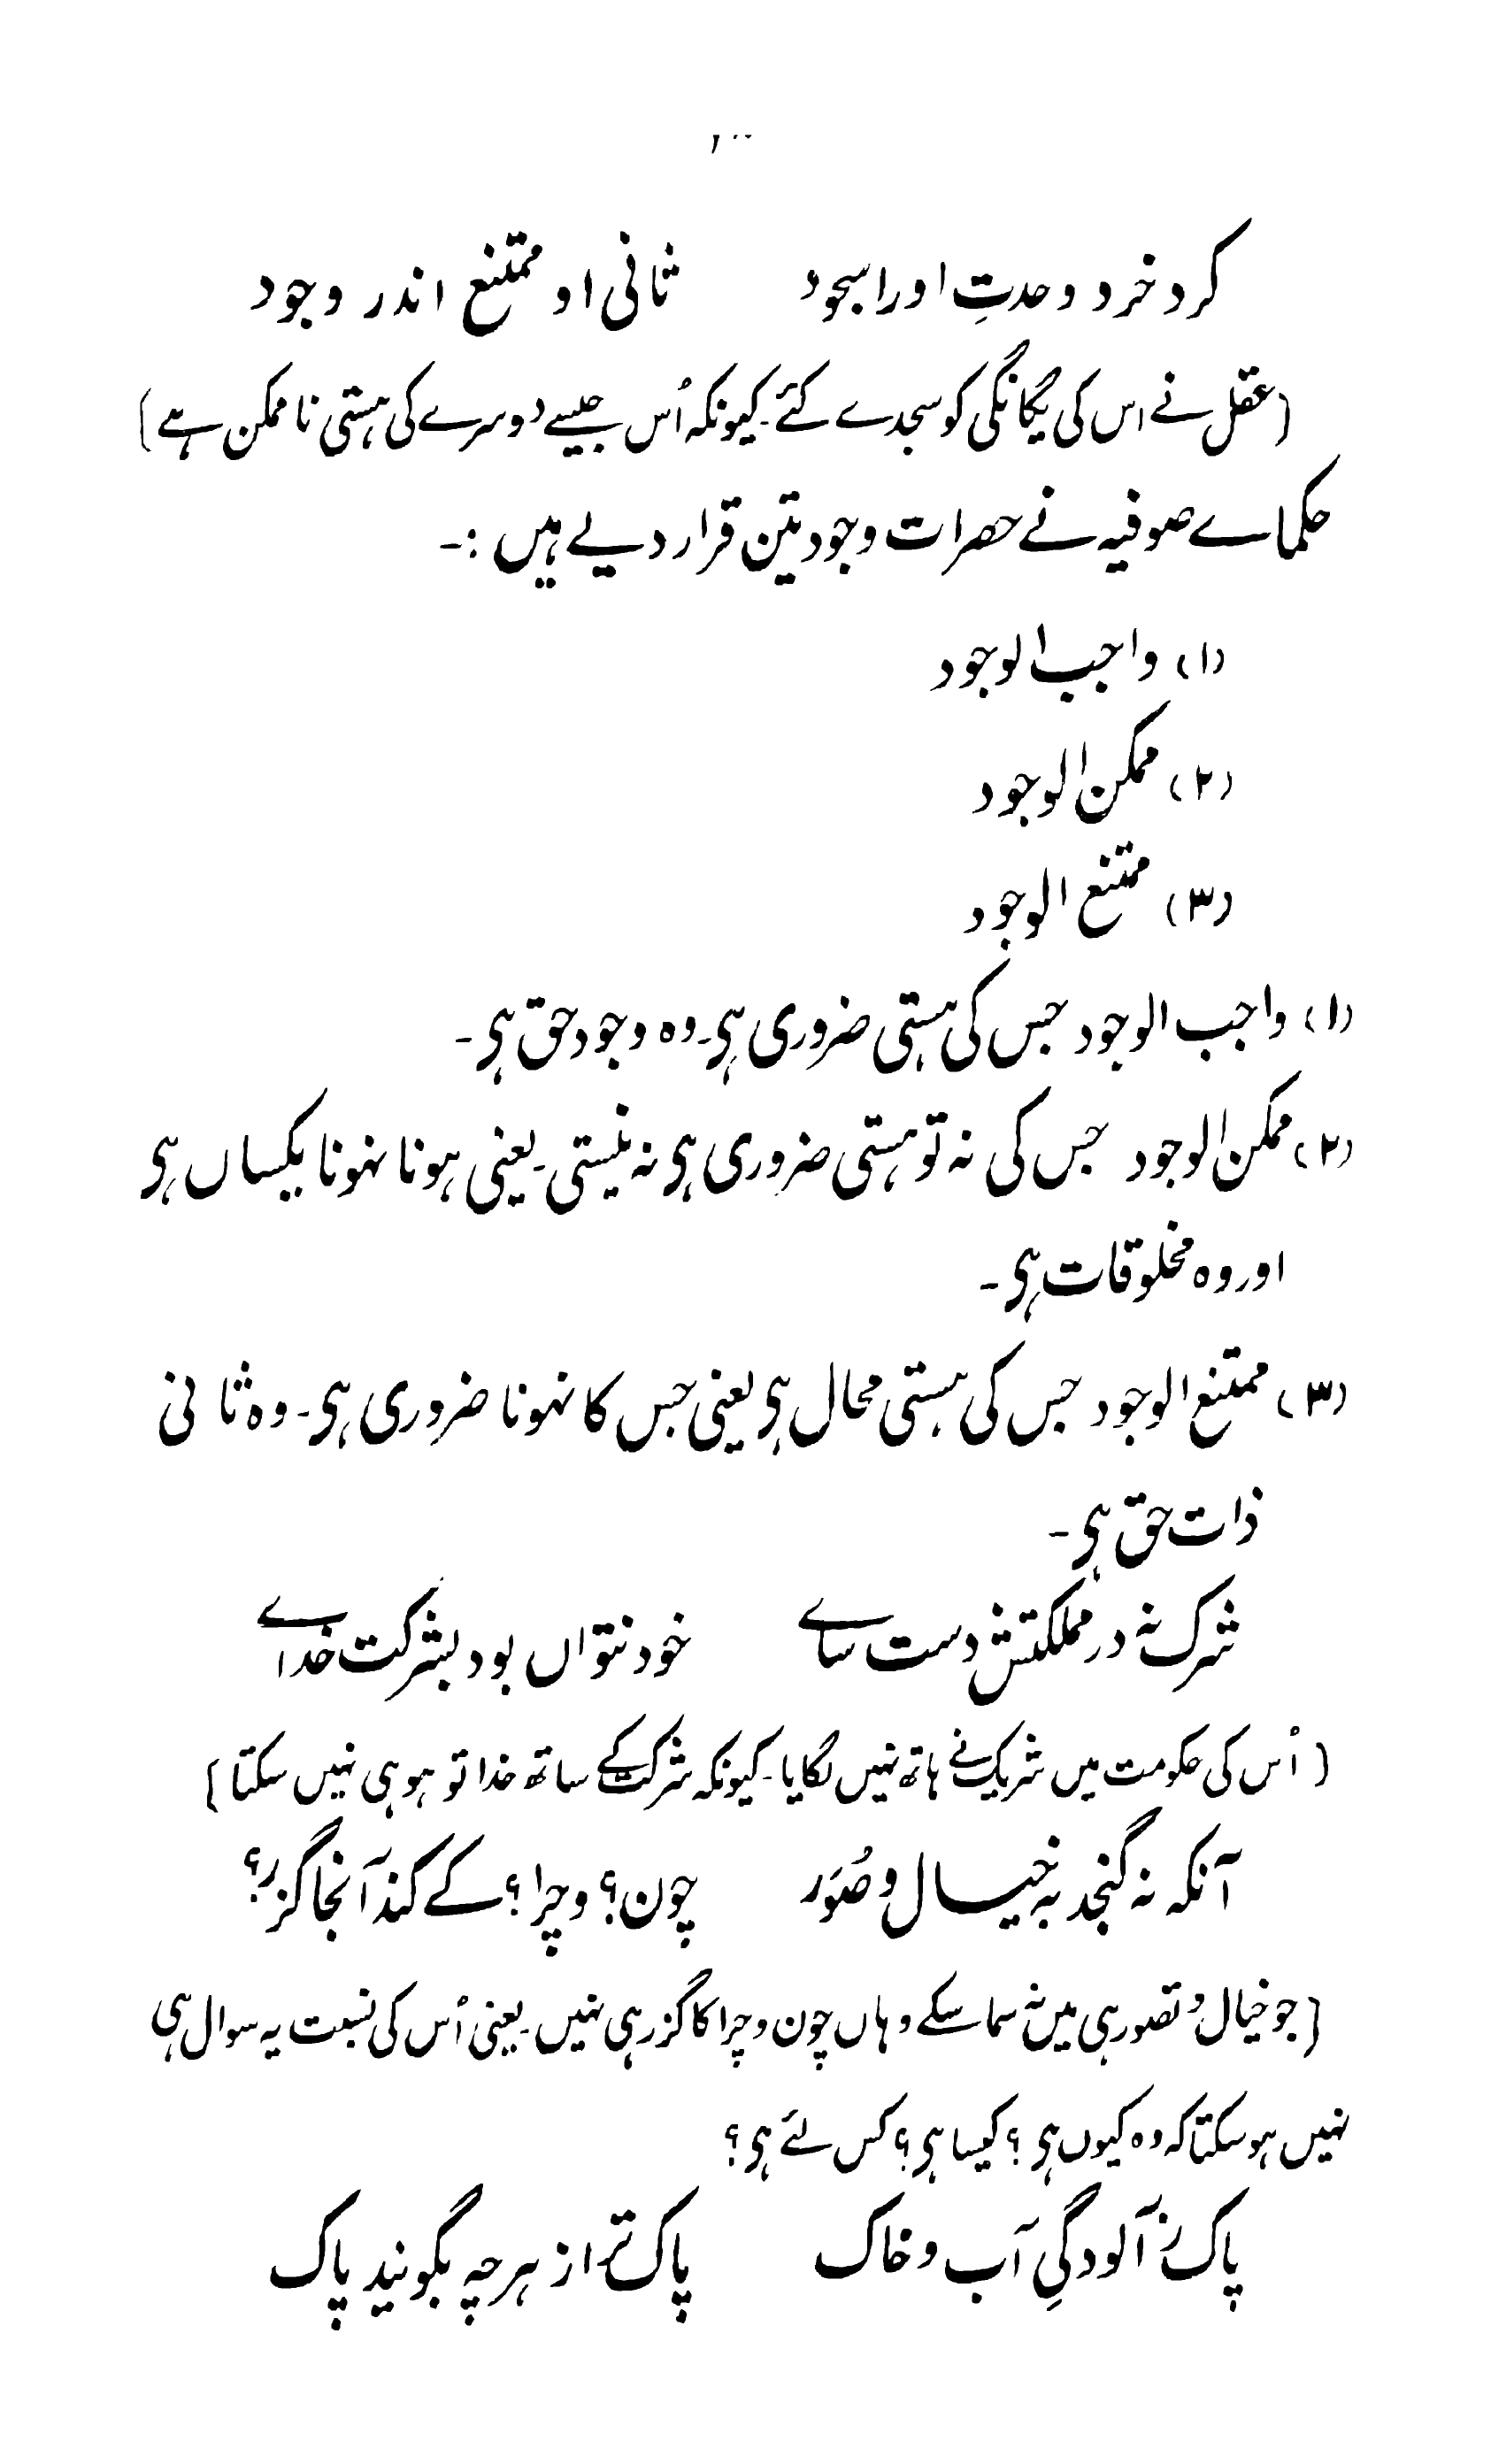 کرد خرد وحدتِ اورا سجود ثانی او ممتنع اندر وجود
(عقل نے اس کی یگانگی کو سجدے کئے۔ کیونکہ اُس جیسے دوسرے کی ہستی ناممکن ہے)
حکماے صوفیہ نے حصرات وجود تین قرار دیے ہیں :۔
(۱) واجب الوجود
(۲) ممکن الوجود
(۳) ممتنع الوجود
(۱) واجب الوجود جس کی ہستی ضروری ہی۔ وہ وجود حق ہی۔
(۲) ممکن الوجود جس کی نہ تو ہستی ضروری ہی نہ نیستی۔ یعنی ہونا نہونا یکساں ہی
اور وہ مخلوقات ہی۔
(۳) ممتنع الوجود جس کی ہستی محال ہی یعنی جس کا نہونا ضروری ہی۔ وہ ثانی
ذات حق ہی۔
شرک نہ در مملکتش دست ساے خود نتواں بود بشرکت خداے
(اُس کی حکومت میں شریک نے ہاتھ نہیں لگایا۔ کیونکہ شرکت کے ساتھ خدا تو ہو ہی نہیں سکتا)
آنکہ نہ گنجد بہ خیال و صُوَر چون؟ و چرا؟ کے کند آنجا گزر؟
(جو خیال و تصور ہی میں نہ سما سکے وہاں چون و چرا کا گزر ہی نہیں۔ یعنی اُس کی نسبت یہ سوال ہی
نہیں ہو سکتا کہ وہ کیوں ہی؟ کیسا ہی؟ کس لئے ہی؟
پاک ز آلودگیِ آب و خاک پاک تر از ہرچہ بگویند پاک